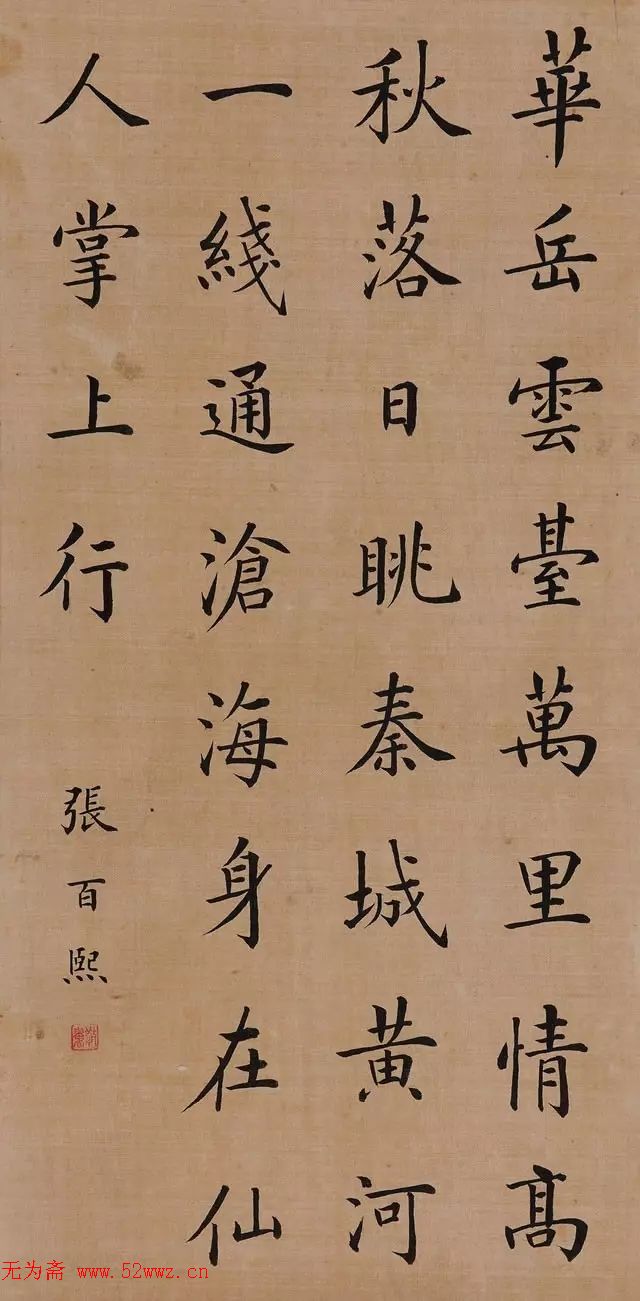 華岳雲臺萬里情高
秋落日眺秦城黄河
一綫通滄海身在仙
人掌上行
張百熙
无为斋 www.52wwz.cn